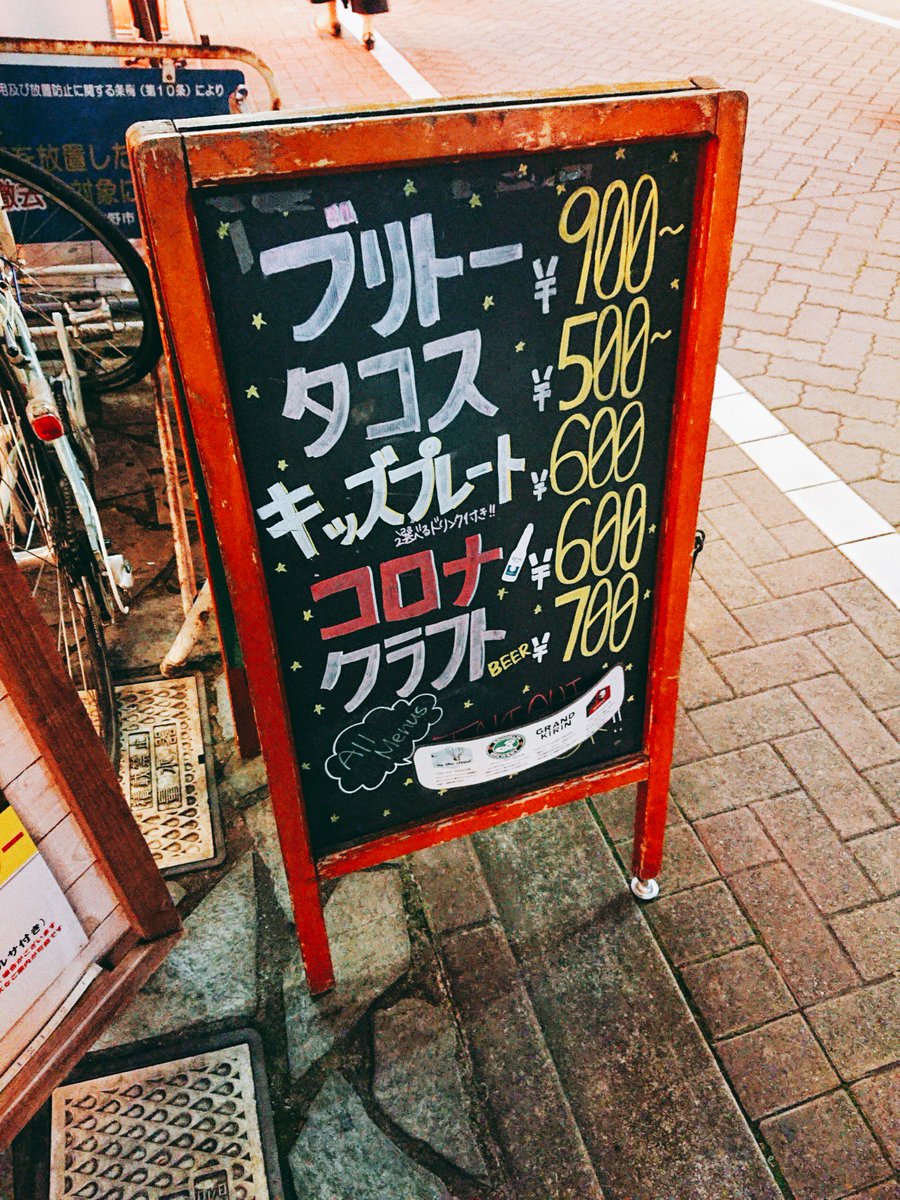 用及び放置防止に関する条例(第10条)により
を放置した
撤去
対象に
野市
ブリトー ¥900~
タコス ¥500~
キッズプレート ¥600
選べるドリンク付き!!
コロナ ¥600
クラフト BEER ¥700
All Menus
TAKE OUT
GRAND KIRIN
ルサ付き)